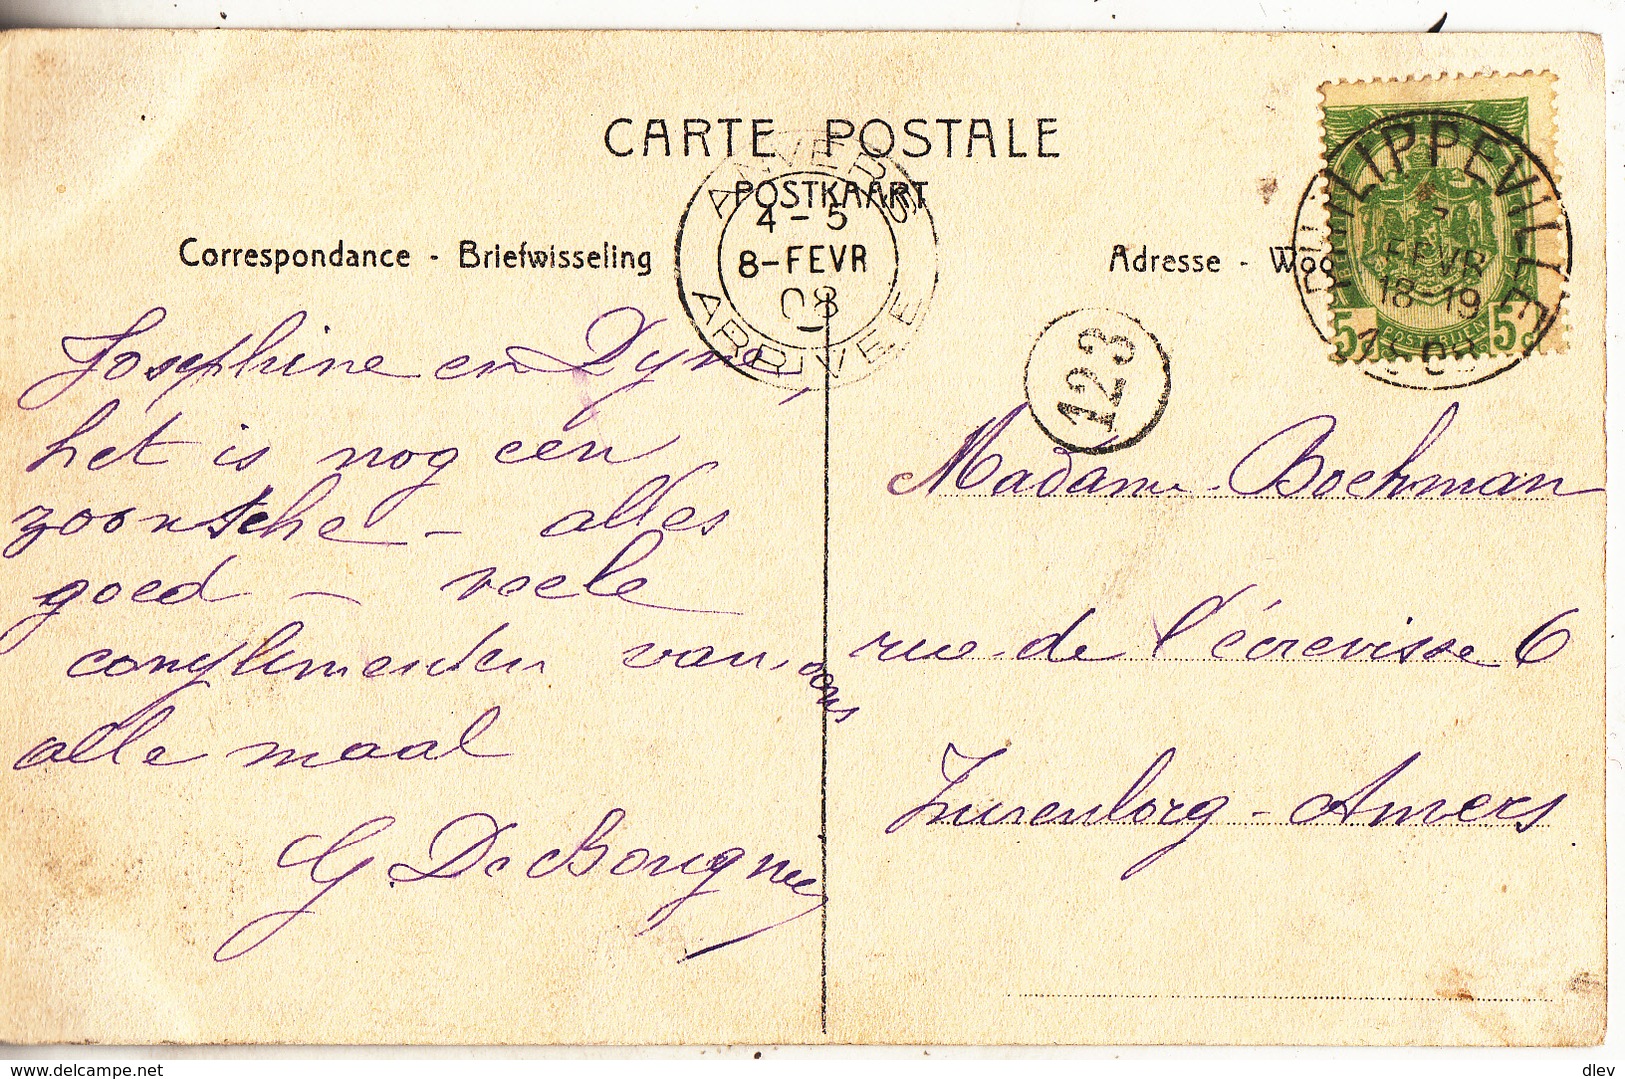 CARTE POSTALE
POSTKAART
Correspondance - Briefwisseling
Adresse - Woo
ANVERS
4-5
8-FEVR
08
ARRIVEE
PHILIPPEVILLE
7
FEVR
18-19
5c 5c
123
Josephine en
het is nog een
zoontche - alles
goed - veele
complimenten van ons
alle maal
G. De
Madame Bochman
rue de l'écrevisse 6
Zurenborg - Anvers
dlev